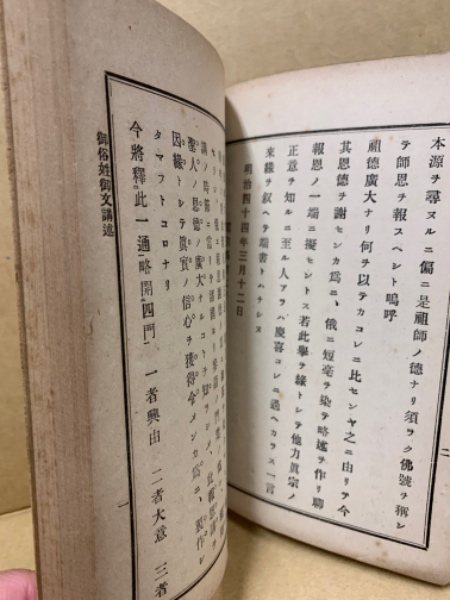 二
本源ヲ尋ヌルニ偏ニ是祖師ノ德ナリ須ラク佛號ヲ稱シ
テ師恩ヲ報スヘシト嗚呼
祖德廣大ナリ何ヲ以テカコレニ比センヤ之ニ由リテ今
其恩德ヲ謝センカ爲ニ、俄ニ短毫ヲ染テ略述ヲ作リ聊
報恩ノ一端ニ擬セントス若此擧ヲ緣トシテ他力眞宗ノ
正意ヲ知ルニ至ル人アラハ慶喜コレニ過ヘカラス一言
來緣ヲ叙ヘテ端書トハナシヌ
明治四十四年三月十二日
聖人ノ恩德ノ廣大ナルコトヲ知ラシメ、
因緣トシテ眞實ノ信心ヲ獲得令メンカ爲ニ、製作シ
タマフトコロナリ
今將釋此一通略開四門 一者興由 二者大意 三者
御俗姓御文講述
一